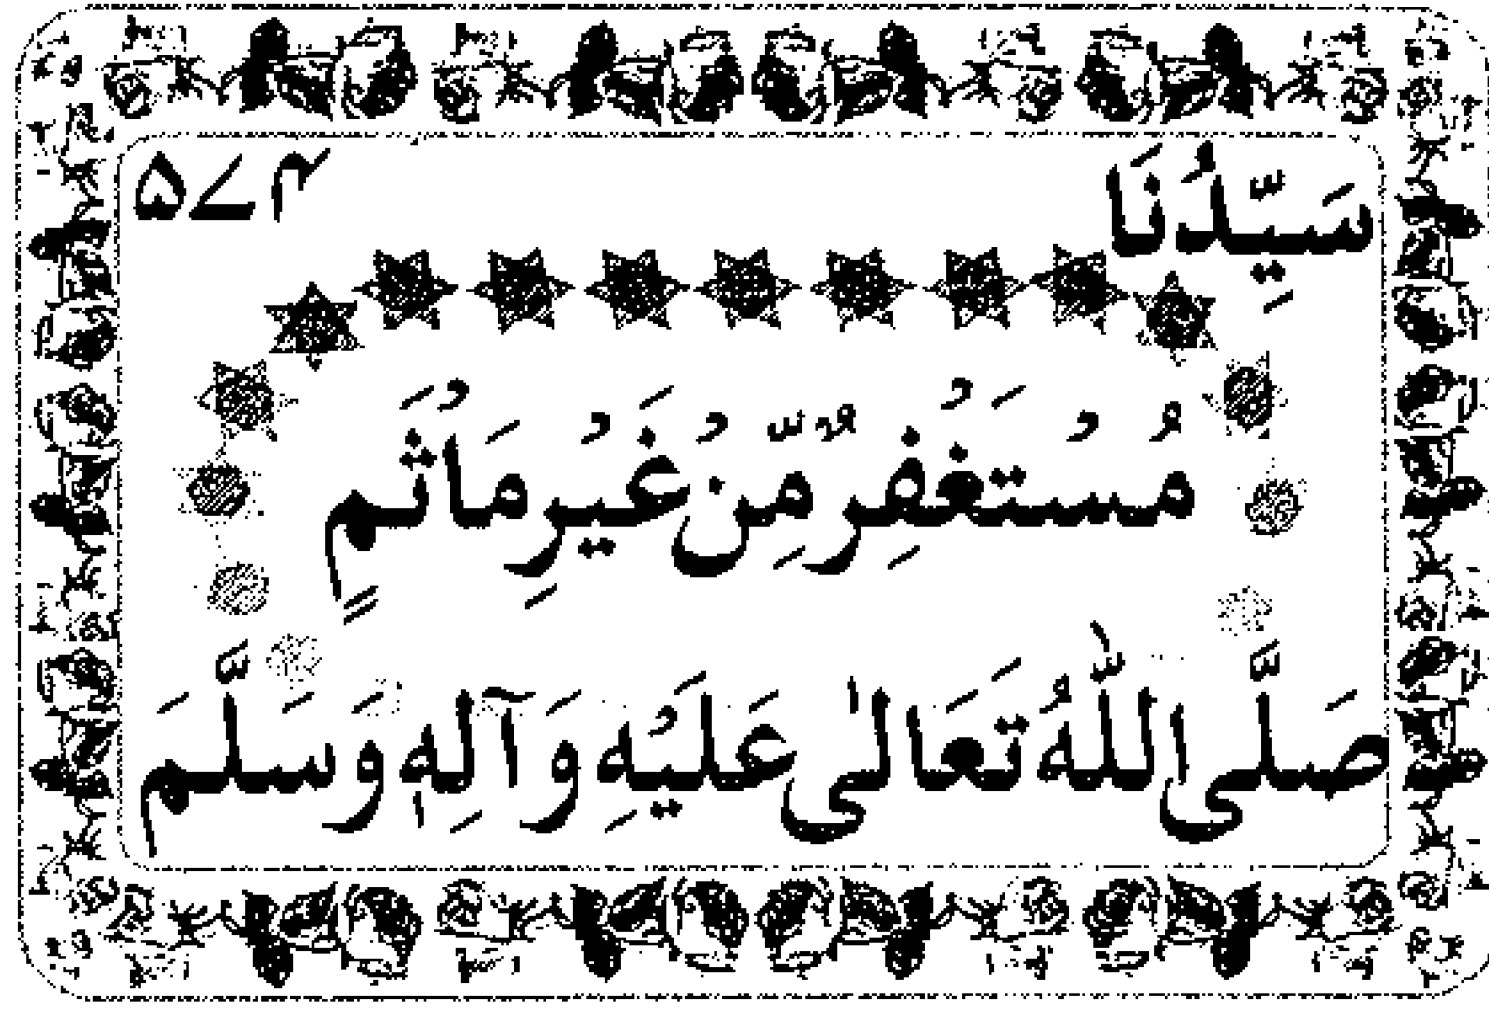 سَيِّدُنَا ۵۷۴
مُسْتَغْفِرٌ مِّنْ غَيْرِ مَاْثَمٍ
صَلَّى اللّٰهُ تَعَالٰى عَلَيْهِ وَآلِهٖ وَسَلَّمَ